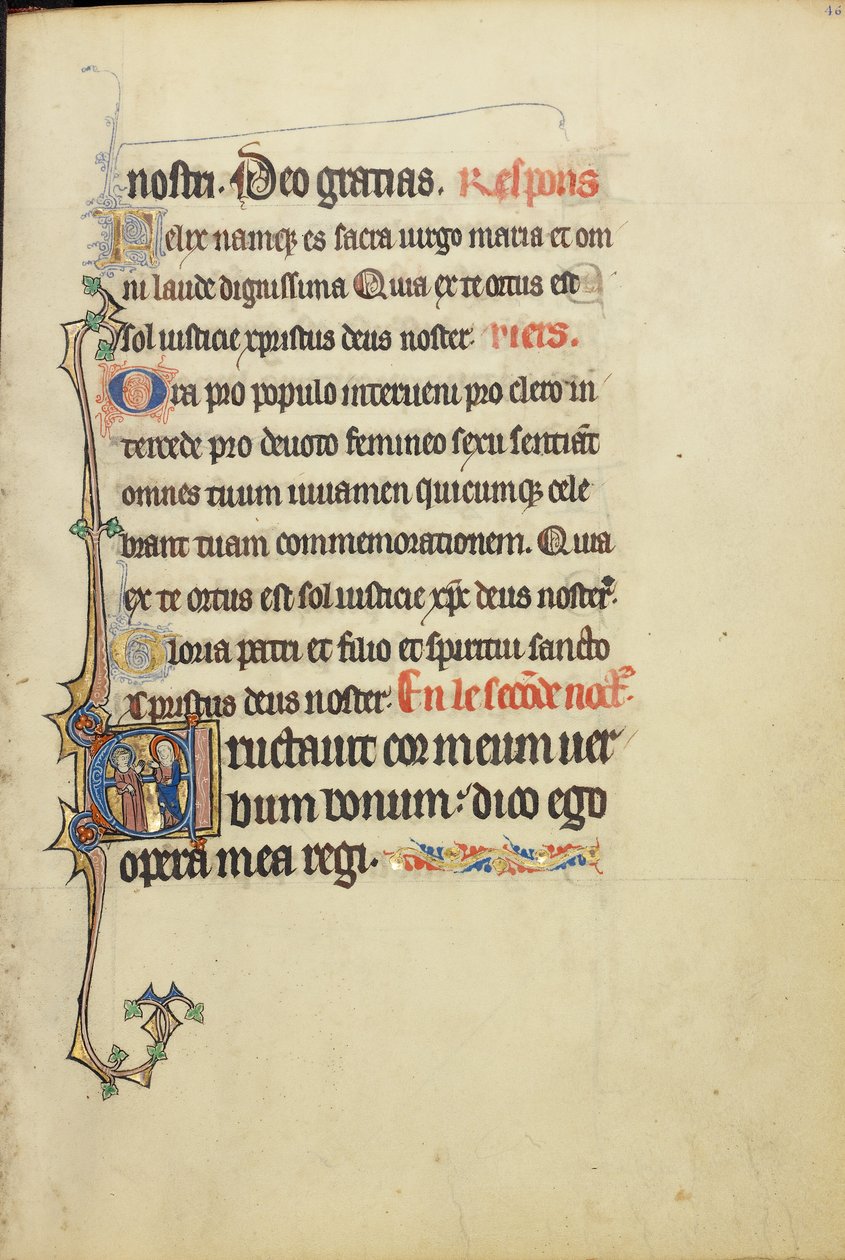 46
nostri. Deo gratias. Respons
Felix namqꝫ es sacra uirgo maria et om
ni laude dignissima Quia ex te ortus est
sol iusticie xpristus deus noster. viers.
Ora pro populo interueni pro clero in
tercede pro deuoto femineo sexu sentiāt
omnes tuum iuuamen quicumqꝫ cele
brant tuam commemorationem. Quia
ex te ortus est sol iusticie xp̄c deus noster.
Gloria patri et filio et spiritui sancto
Xpristus deus noster. En le secōde noct᷑.
Eructauit cor meum uer
bum bonum: dico ego
opera mea regi.